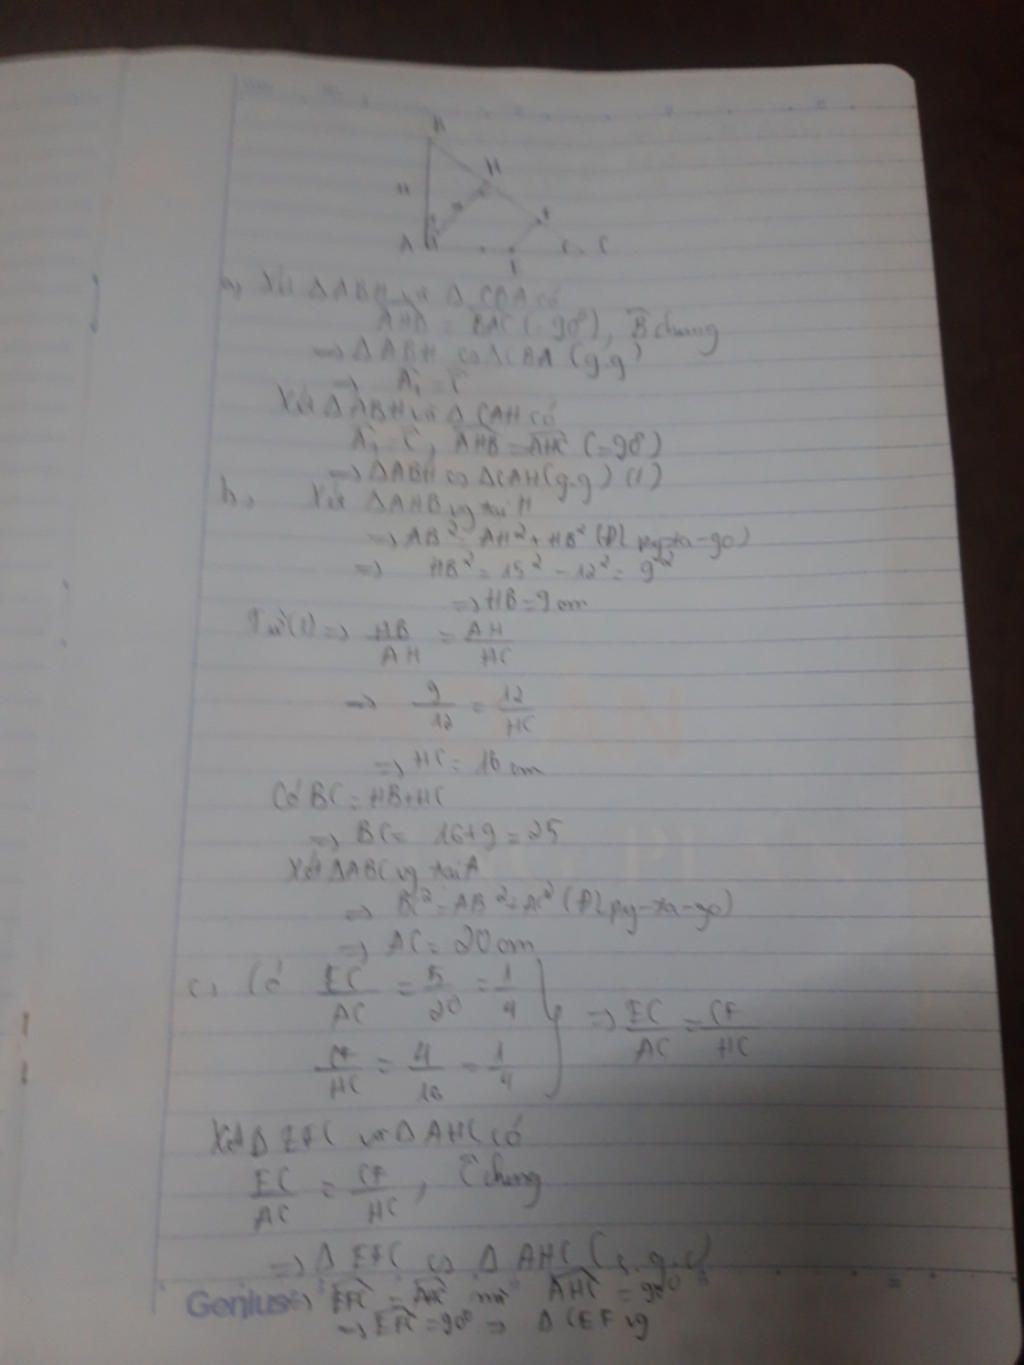 B
H
A
C
a, Xét ΔABH và ΔCBA có
AHB = BAC (=90°), B chung
=> ΔABH ∽ ΔCBA (g.g)
=> A₁ = C
Xét ΔABH và ΔCAH có
A₁ = C, AHB = AHC (=90°)
=> ΔABH ∽ ΔCAH (g.g) (1)
b, Xét ΔAHB vg tại H
=> AB² = AH² + HB² (Đl py-ta-go)
=> HB² = 15² - 12² = 9²
=> HB = 9 cm
Từ (1) => HB/AH = AH/HC
=> 9/12 = 12/HC
=> HC = 16 cm
Có BC = HB+HC
=> BC = 16+9 = 25
Xét ΔABC vg tại A
=> BC² = AB² + AC² (Đl py-ta-go)
=> AC = 20 cm
c, Có EC/AC = 5/20 = 1/4
CF/HC = 4/16 = 1/4
=> EC/AC = CF/HC
Xét Δ EFC và Δ AHC có
EC/AC = CF/HC, C chung
=> Δ EFC ∽ Δ AHC (c.g.c)
Genius => EFC = AHC mà AHC = 90°
=> EFC = 90° => ΔCEF vg